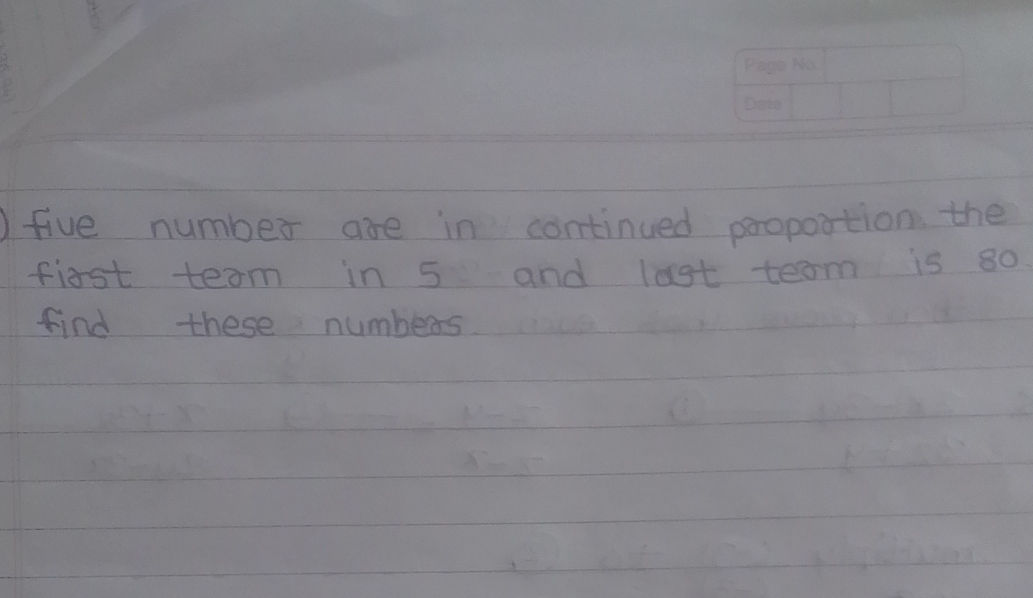 Page No.
Date
) five number are in continued proportion. the
first team in 5 and last team is 80.
find these numbers.